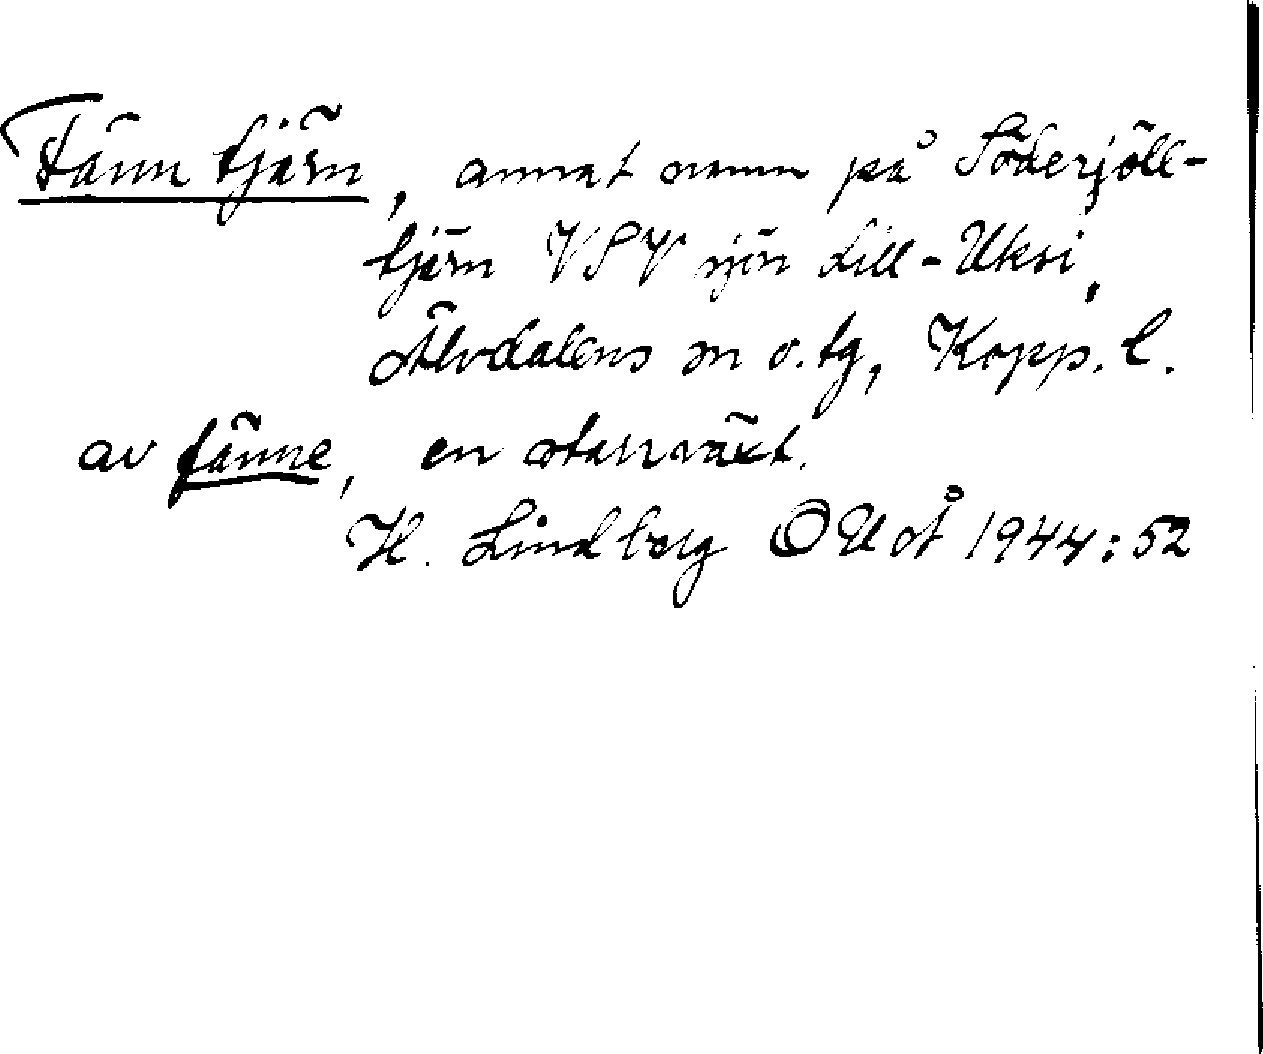 Fänntjärn, annat namn på Söderjöll-
tjärn VSV sjön Lill-Uksi,
Älvdalens sn o. tg, Kopp. l.
av fänne, en starrväxt.
H. Lindberg OUoÅ 1944:52